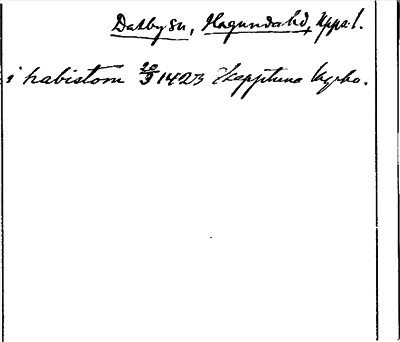 Dalby sn, Hagunda hd, Upps. l.
i habistom 20/9 1423 Skepptuna kyrka.